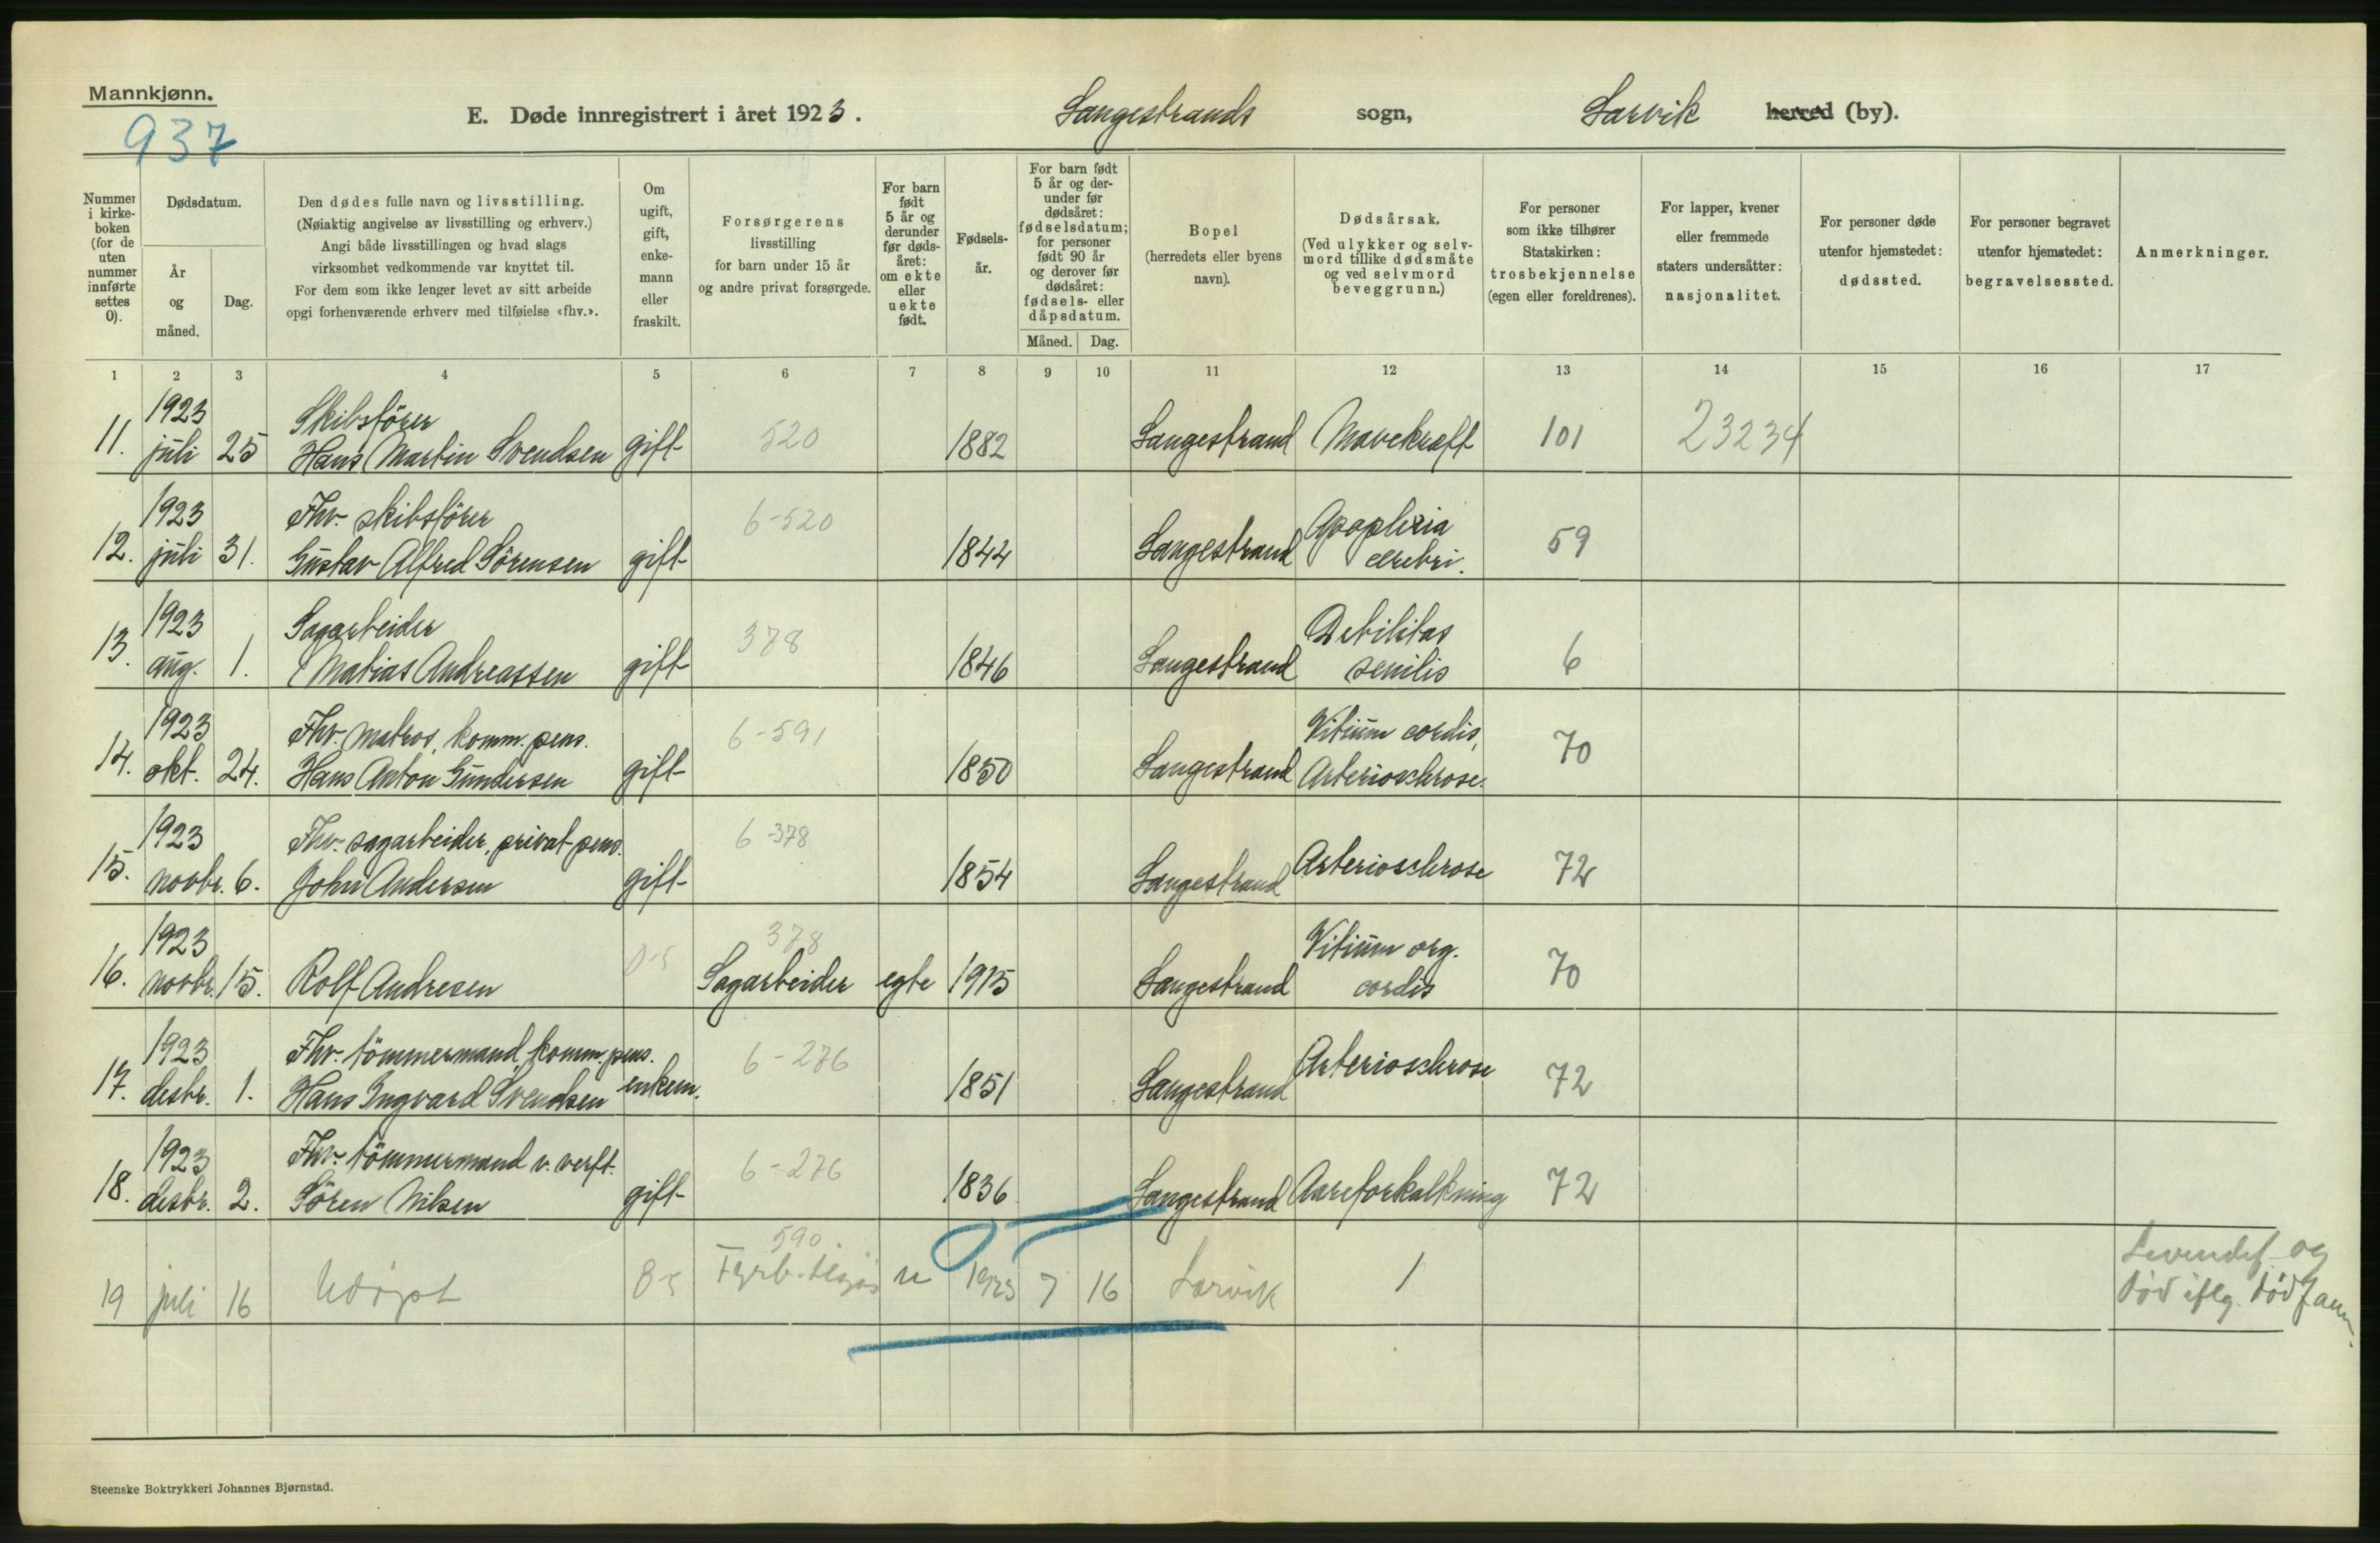 Mannkjønn.
937
E. Døde innregistrert i året 1923.
Langestrands sogn, Larvik herred (by).
Nummer i kirkeboken (for de uten nummer innførte settes 0).
Dødsdatum.
År og måned.
Dag.
Den dødes fulle navn og livsstilling.
(Nøiaktig angivelse av livsstilling og erhverv.)
Angi både livsstillingen og hvad slags
virksomhet vedkommende var knyttet til.
For dem som ikke lenger levet av sitt arbeide
opgi forhenværende erhverv med tilføielse «fhv.».
Om ugift, gift, enkemann eller fraskilt.
Forsørgerens
livsstilling
for barn under 15 år
og andre privat forsørgede.
For barn født 5 år og derunder før dødsåret: om ekte eller uekte født.
Fødselsår.
For barn født 5 år og derunder før dødsåret: fødselsdatum; for personer født 90 år og derover før dødsåret: fødsels- eller dåpsdatum.
Måned. Dag.
Bopel
(herredets eller byens navn).
Dødsårsak.
(Ved ulykker og selvmord tillike dødsmåte og ved selvmord beveggrunn.)
For personer
som ikke tilhører
Statskirken:
trosbekjennelse
(egen eller foreldrenes).
For lapper, kvener
eller fremmede
staters undersåtter:
nasjonalitet.
For personer døde
utenfor hjemstedet:
dødssted.
For personer begravet
utenfor hjemstedet:
begravelsessted.
Anmerkninger.
1 2 3 4 5 6 7 8 9 10 11 12 13 14 15 16 17
1923 Skibsförer
11. juli 25 Hans Martin Svendsen gift 520 1882 Langestrand Mavekræft 101 23234
1923 Fhv. skibsförer 6-520 Apoplexia
12. juli 31. Gustav Alfred Sörensen gift 1844 Langestrand cerebri. 59
1923 Sagarbeider 378 Debilitas
13. aug. 1. Matias Andreassen gift 1846 Langestrand senilis 6
1923 Fhv. matros, komm. pens. 6-591 Vitium cordis,
14. okt. 24. Hans Anton Gundersen gift 1850 Langestrand Arteriosclrose. 70
1923 Fhv. sagarbeider, privat pens. 6-378
15. novbr. 6. John Andersen gift 1854 Langestrand Arteriosclrose 72
1923 378 Vitium org.
16. novbr. 15. Rolf Andresen Sagarbeider egte 1915 Langestrand cordis 70
1923 Fhv. tömmermand, komm. pens. 6-276
17. desbr. 1. Hans Ingvard Svendsen enkem. 1851 Langestrand Arteriosclrose 72
1923 Fhv. tömmermand v. verft. 6-276
18. desbr. 2. Sören Nilsen gift 1836 Langestrand Aareforkalkning 72
590 Levendef. og
19 juli 16 Udöpt u 1923 7 16 Larvik 1 död iflg.
Steenske Boktrykkeri Johannes Bjørnstad.